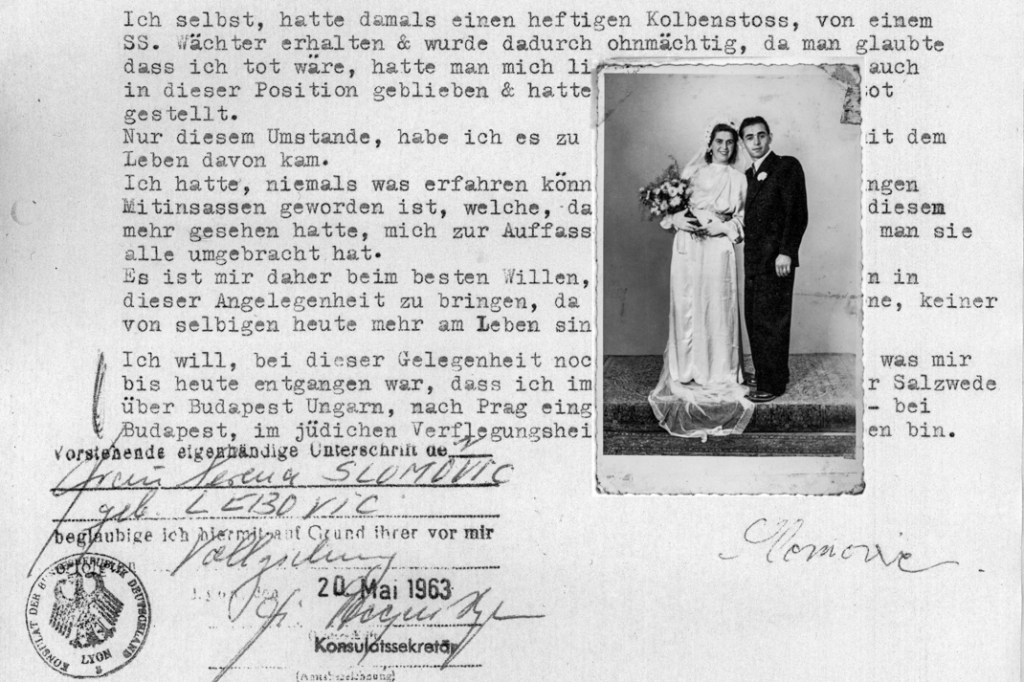 Ich selbst, hatte damals einen heftigen Kolbenstoss, von einem
SS. Wächter erhalten & wurde dadurch ohnmächtig, da man glaubte
dass ich tot wäre, hatte man mich li auch
in dieser Position geblieben & hatte tot
gestellt.
Nur diesem Umstande, habe ich es zu mit dem
Leben davon kam.
Ich hatte, niemals was erfahren könn ngen
Mitinsassen geworden ist, welche, da diesem
mehr gesehen hatte, mich zur Auffass man sie
alle umgebracht hat.
Es ist mir daher beim besten Willen, n in
dieser Angelegenheit zu bringen, da ne, keiner
von selbigen heute mehr am Leben sin
Ich will, bei dieser Gelegenheit noc was mir
bis heute entgangen war, dass ich im r Salzwede
über Budapest Ungarn, nach Prag eing - bei
Budapest, im jüdichen Verflegungshei en bin.
Vorstehende eigenhändige Unterschrift de r
Frau Verena SLOMOVIC
geb. LEBOVIC
beglaubige ich hiermit auf Grund ihrer vor mir
Vollziehung
20. Mai 1963
Konsulatssekretär
(Amtsbezeichnung)
KONSULAT DER BUNDESREPUBLIK DEUTSCHLAND
LYON
Slomovic